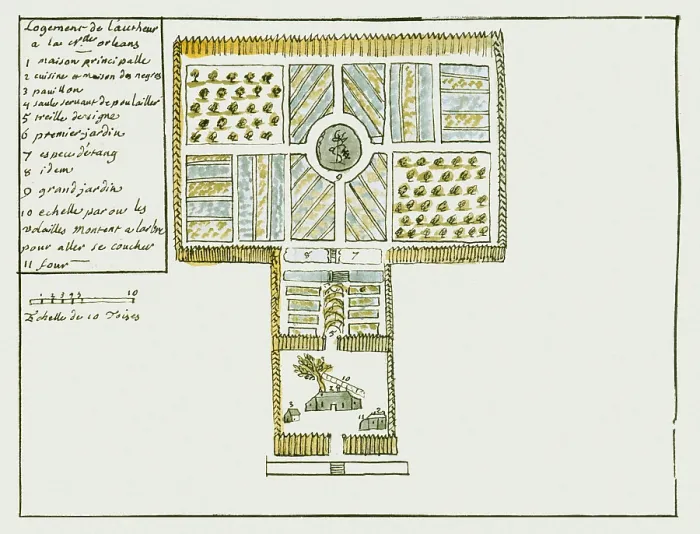 Logement de l'autheur
a la nvlle orleans
1 maison principalle
2 cuisine et maison de negres
3 pavillon
4 saule servant de poulailler
5 treille de vigne
6 premier jardin
7 espece d'etang
8 idem
9 grand jardin
10 echelle par ou les
volailles montent a l'arbre
pour aller se coucher
11 four
1 2 3 4 5 10
Echelle de 10 Toises
9
8 7
5
10
4
3
2
11